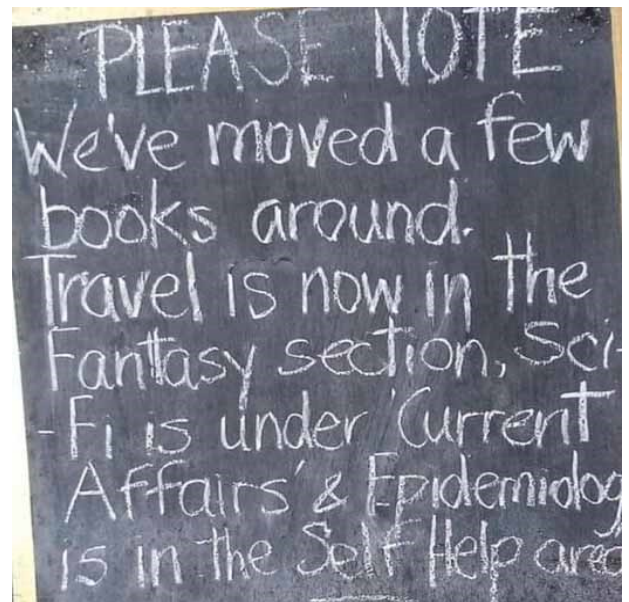 PLEASE NOTE
We've moved a few
books around.
Travel is now in the
Fantasy section, Sci-
-Fi is under 'Current
Affairs' & Epidemiolog
is in the Self Help area